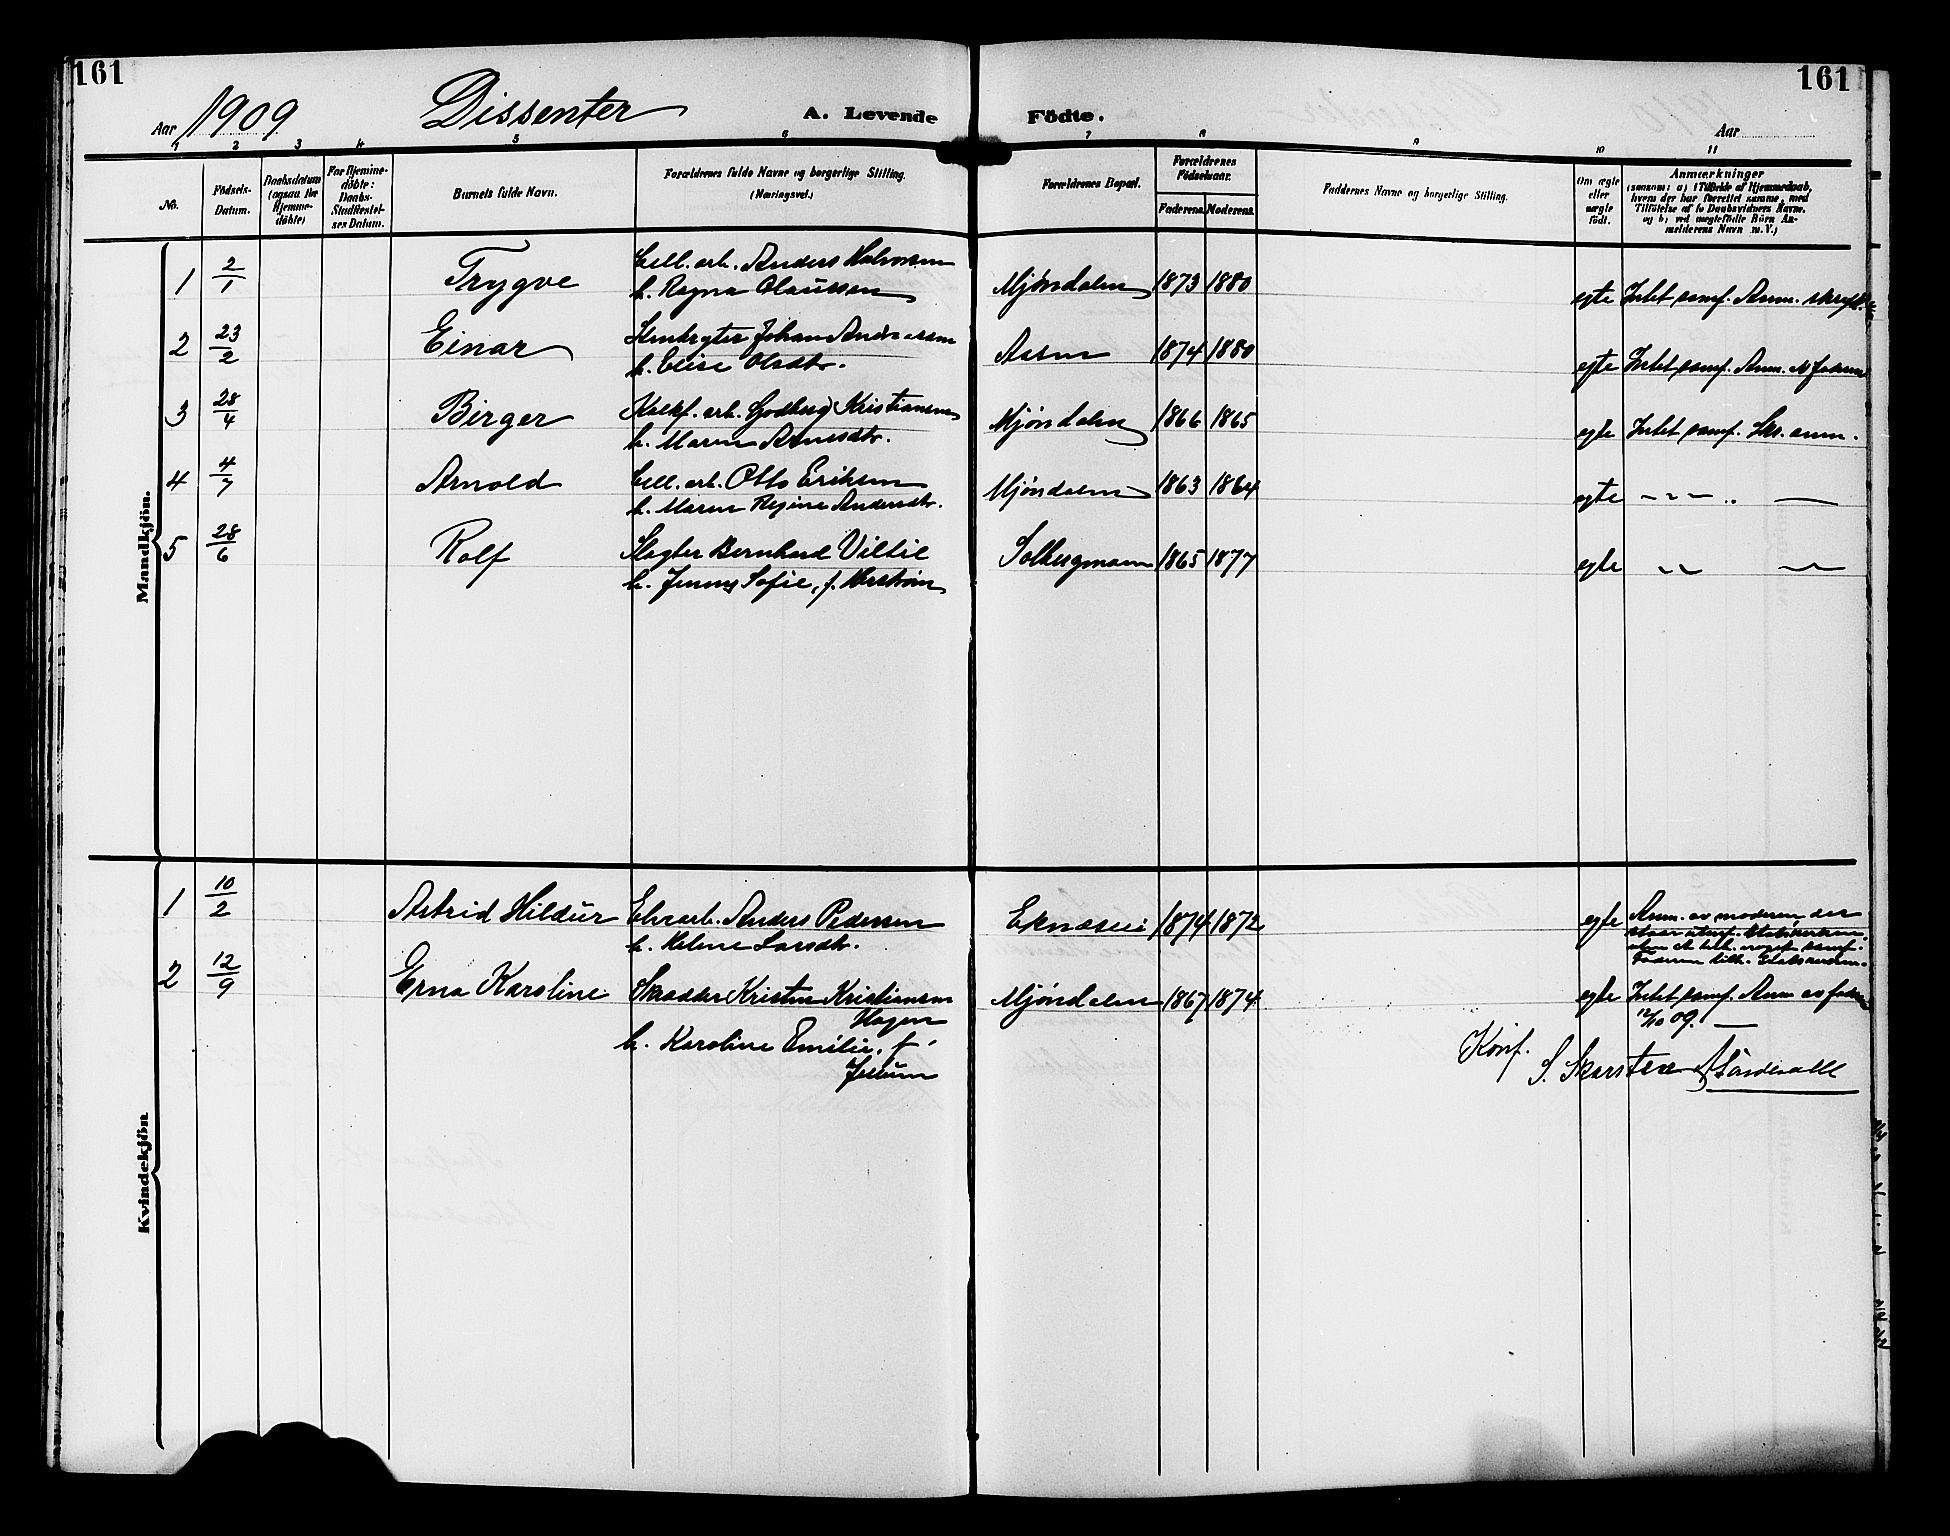 161
161
Aar 1909
Dissenter
A. Levende
Födte.
Aar
1 2 3 4 5 6 7 8 9 10 11
No.
Födsels-
Datum.
Daabsdatum
(ogsaa for
Hjemme-
döbte)
For Hjemme-
döbte:
Daabs-
Stadfæstel-
ses Datum.
Barnets fulde Navn.
Forældrenes fulde Navne og borgerlige Stilling.
(Næringsvei.)
Forældrenes Bopæl.
Forældrenes
Födselsaar.
Faderens. Moderens.
Faddernes Navne og borgerlige Stilling.
Om ægte
eller
uægte
født.
Anmærkninger
(saasom: a) i Tilfælde af Hjemmedaab,
hvem der har forrettet samme, med
Tilföielse af to Daabsvidners Navne.
og b) ved uægtefödte Börn An-
melderens Navn m. V.)
Mandkjön.
1 2/1 Trygve Cell. arb. Anders Halvorsen
h. Ragna Olaussen Mjøndalen 1873 1880 egte Intet samf. Anm. skriftl.
2 23/2 Einar Stenbryter Johan Andreassen
h. Elise Olsdtr. Aasen 1874 1880 egte Intet samf. Anm. af faderen
3 28/4 Birger Kalkf. arb. Godberg Kristiansen
h. Maren Arnesdtr. Mjøndalen 1866 1865 egte Intet samf. Skr. anm.
4 4/7 Arnold Cell. arb. Otto Eriksen
h. Maren Regine Andersdtr. Mjøndalen 1863 1864 egte
5 28/6 Rolf Slagter Bernhard Viltil
h. Jenny Sofie, f. Solbergmoen 1865 1877 egte
Kvindekjön
1 10/2 Astrid Hildur Elvearb. Anders Pedersen
h. Helene Larsdtr. Eknæsvei 1874 1872 egte Anm. av moderen, der
staar utenf. Statskirken,
uten at tilh. noget samf.
Faderen tilh. Statskirken.
2 12/9 Erna Karoline Skrædder Kristen Kristiansen
Hagen
h. Karoline Emilie, f.
Jellum Mjøndalen 1867 1874 egte Intet samf. Anm av faderen
12/10 09.
Konf.
S. Skarsten